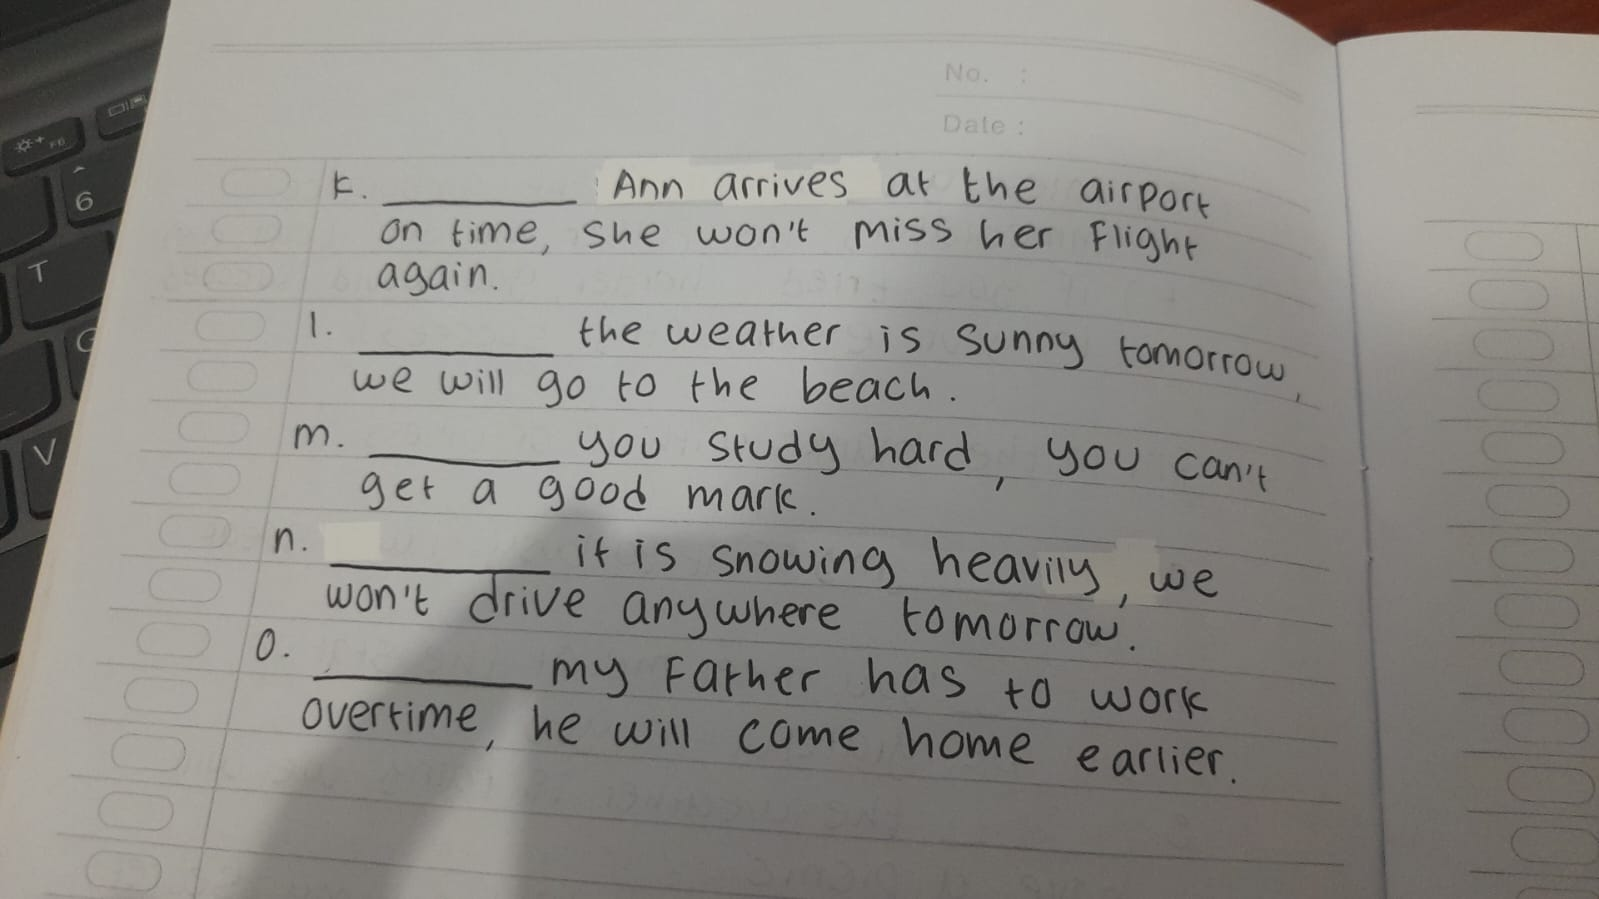 No. :
Date :
k. ________ Ann arrives at the airport
on time, she won't miss her flight
again.
l. ________ the weather is sunny tomorrow,
we will go to the beach.
m. ________ you study hard, you can't
get a good mark.
n. ________ it is snowing heavily, we
won't drive anywhere tomorrow.
o. ________ my father has to work
overtime, he will come home earlier.
F6
6
T
G
V